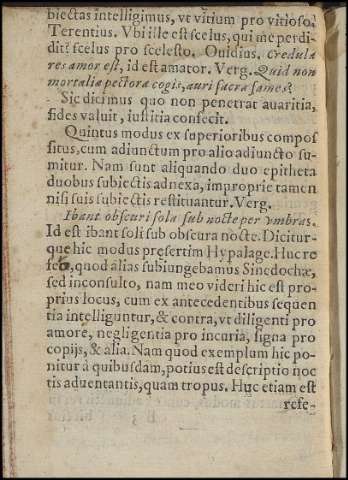 biectas intelligimus, vt vitium pro vitioso.
Terentius. Vbi ille est scelus, qui me perdi-
dit? scelus pro scelesto. Ouidius. Credula
res amor est, id est amator. Verg. Quid non
mortalia pectora cogis, auri sacra fames?
Sic dicimus quo non penetrat auaritia,
fides valuit, iustitia confecit.
Quintus modus ex superioribus compos
situs, cum adiunctum pro alio adiuncto su-
mitur. Nam sunt aliquando duo epitheta
duobus subiectis adnexa, improprie tamen
nisi suis subiectis restituantur. Verg.
Ibant obscuri sola sub nocte per vmbras.
Id est ibant soli sub obscura nocte. Dicitur-
que hic modus pręsertim Hypalage. Huc re
fero, quod alias subiungebamus Sinedochæ,
sed inconsulto, nam meo videri hic est pro-
prius locus, cum ex antecedentibus sequen
tia intelliguntur, & contra, vt diligenti pro
amore, negligentia pro incuria, signa pro
copijs, & alia. Nam quod exemplum hic po-
nitur à quibusdam, potius est descriptio noc
tis aduentantis, quam tropus. Huc etiam est
refe-